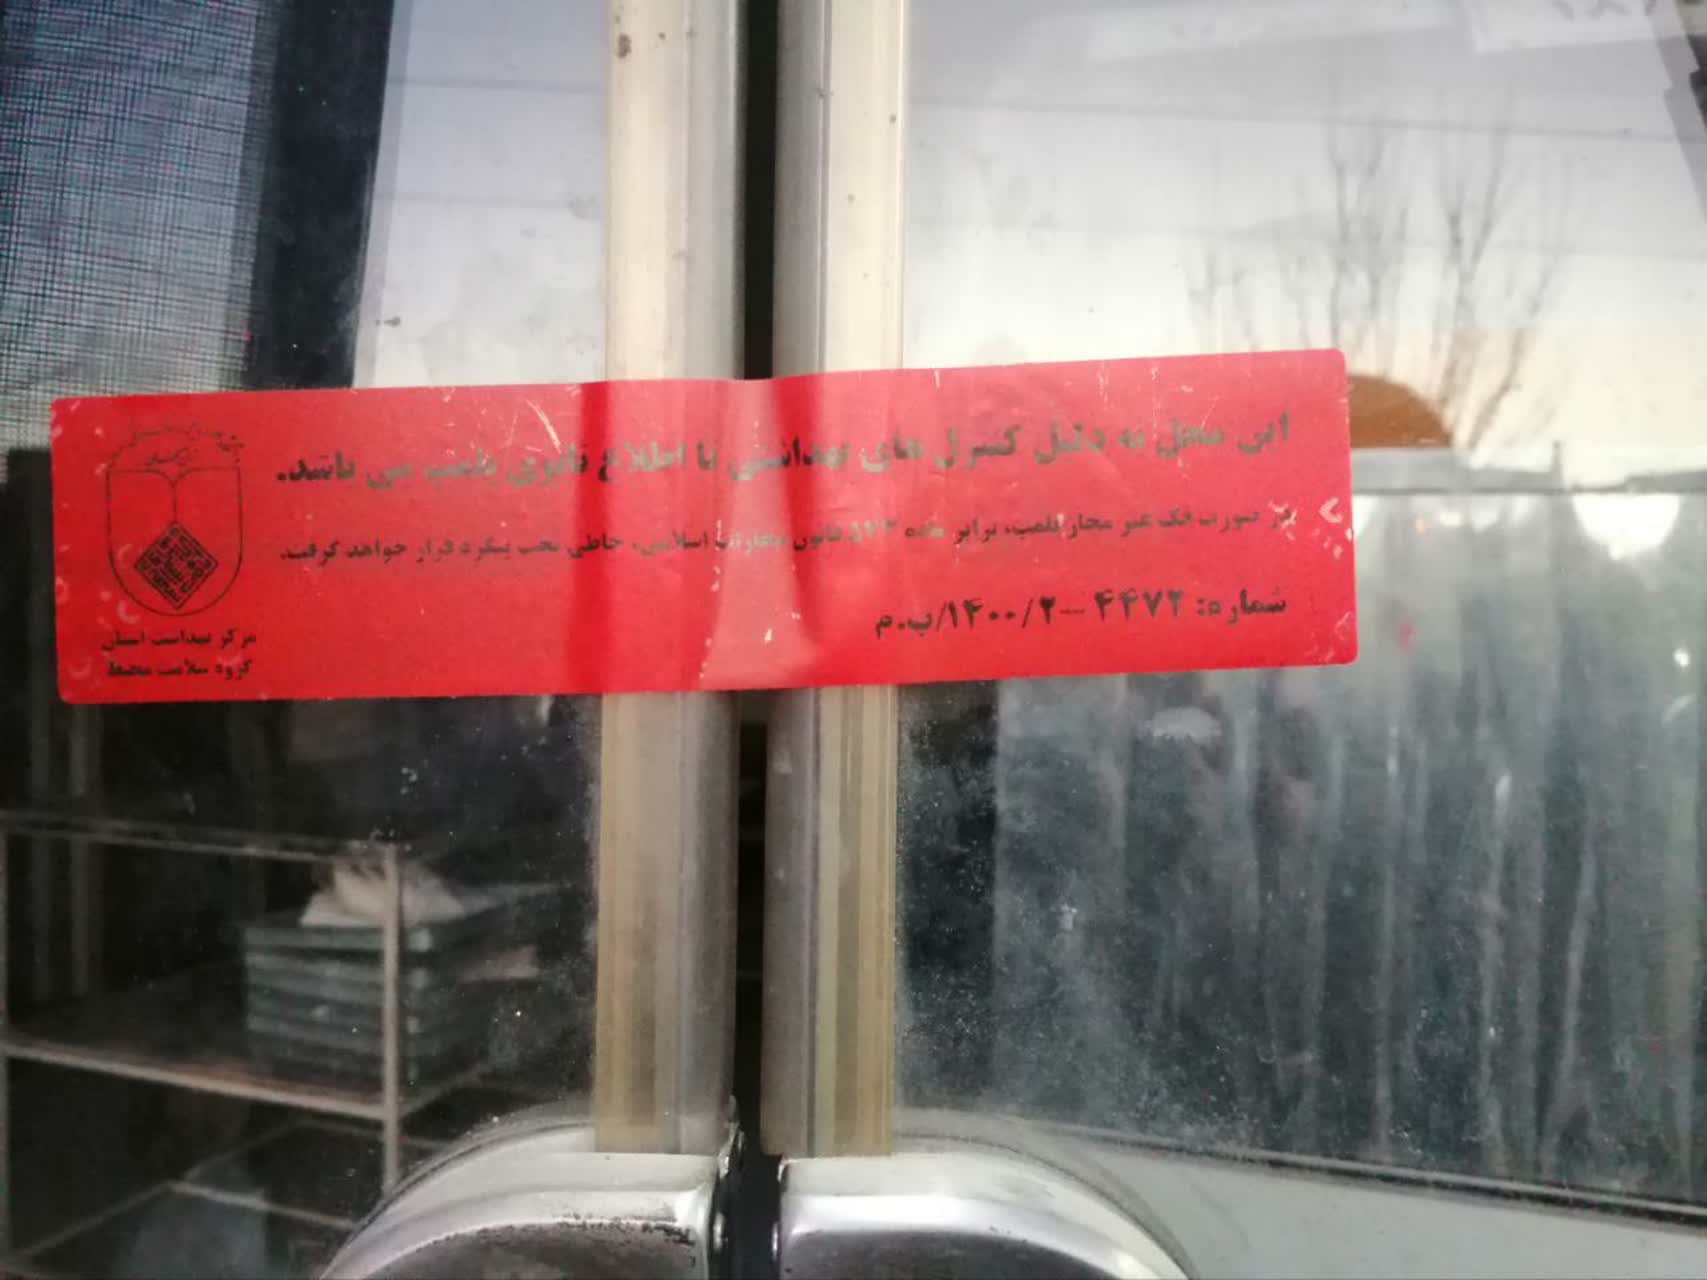 این محل به دلیل کنترل های بهداشتی تا اطلاع ثانوی پلمب می باشد.
در صورت فک غیر مجاز پلمب، برابر ماده ۵۴۳ قانون مجازات اسلامی، خاطی تحت پیگرد قرار خواهد گرفت.
شماره: ۴۴۷۲ – ۱۴۰۰/۲/ب.م
مرکز بهداشت استان
گروه سلامت محیط